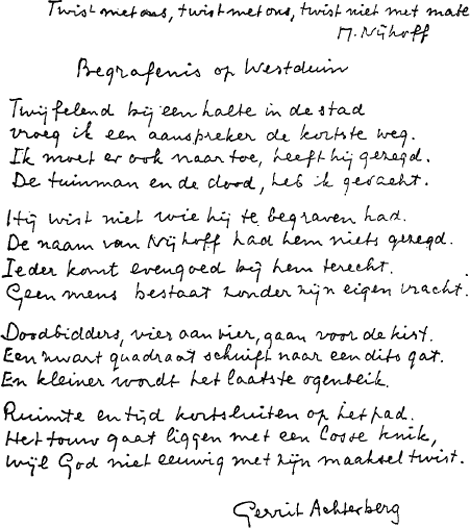 Twist met ons, twist met ons, twist niet met mate
M. Nijhoff
Begrafenis op Westduin
Twijfelend bij een halte in de stad
vroeg ik een aanspreker de kortste weg.
Ik moet er ook naar toe, heeft hij gezegd.
De tuinman en de dood, heb ik gedacht.
Hij wist niet wie hij te begraven had.
De naam van Nijhoff had hem niets gezegd.
Ieder komt evengoed bij hem terecht.
Geen mens bestaat zonder zijn eigen vracht.
Doodbidders, vier aan vier, gaan voor de kist.
Een zwart quadraat schuift naar een dito gat.
En kleiner wordt het laatste ogenblik.
Ruimte en tijd kortsluiten op het pad.
Het touw gaat liggen met een losse knik,
wijl God niet eeuwig met zijn maaksel twist.
Gerrit Achterberg